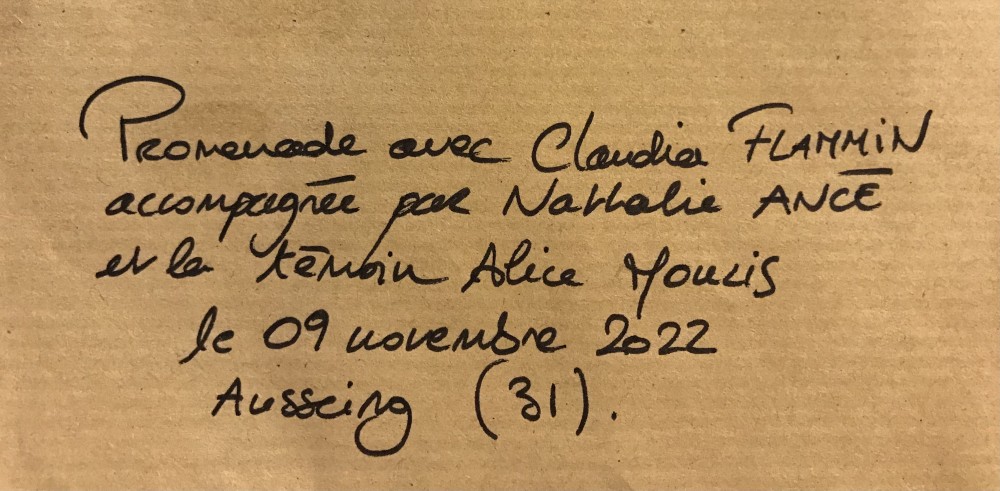 Promenade avec Claudia FLAMMIN
accompagnée par Nathalie ANCÉ
et la témoin Alice Moulis
le 09 novembre 2022
Ausseing (31).